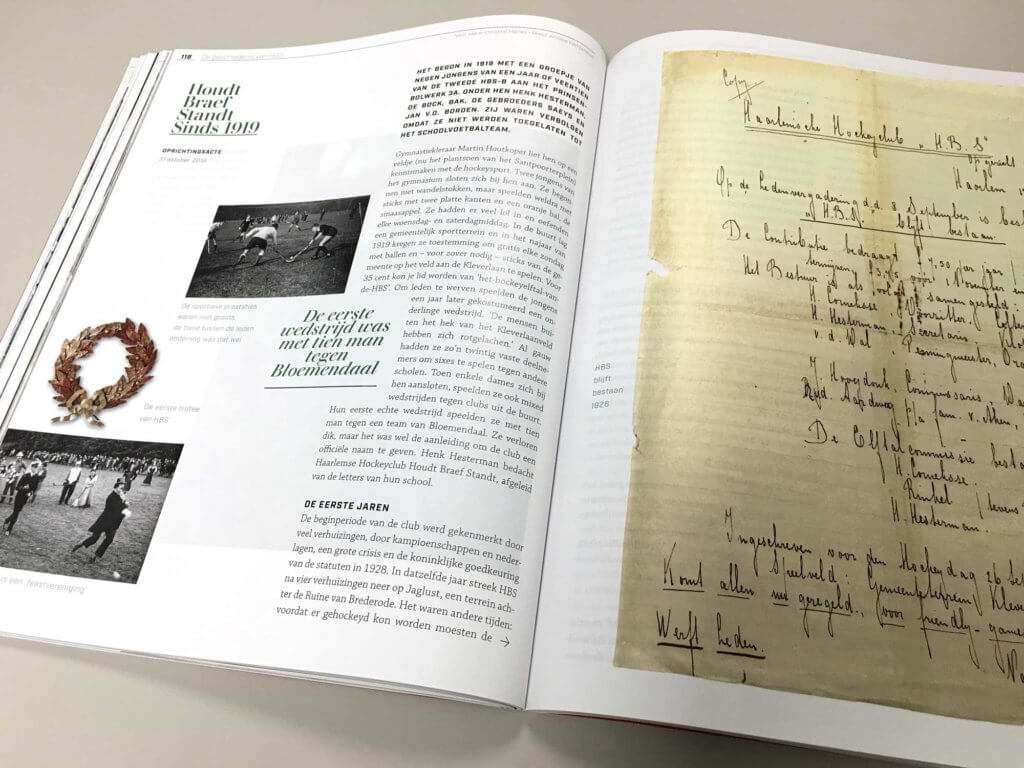 118 De geschiedenis van HBS
Houdt
Braef
Standt
Sinds 1919
OPRICHTINGSACTE
31 oktober 2016
De sportieve prestaties
waren niet groots,
de band tussen de leden
onderling was dat wel
De eerste trofee
van HBS
is een 'feestvereniging'
HET BEGON IN 1919 MET EEN GROEPJE VAN
NEGEN JONGENS VAN EEN JAAR OF VEERTIEN
VAN DE TWEEDE HBS-B AAN HET PRINSEN-
BOLWERK 3A. ONDER HEN HENK HESTERMAN,
DE BOCK, BAK, DE GEBROEDERS SAEYS EN
JAN V.D. BORDEN. ZIJ WAREN VERBOLGEN
OMDAT ZE NIET WERDEN TOEGELATEN TOT
HET SCHOOLVOETBALTEAM.
Gymnastiekleraar Martin Houtkoper liet hen op een
veldje (nu het plantsoen van het Santpoorterplein)
kennismaken met de hockeysport. Twee jongens van
het gymnasium sloten zich bij hen aan. Ze begon-
nen met wandelstokken, maar speelden weldra met
sticks met twee platte kanten en een oranje bal, de
sinaasappel. Ze hadden er veel lol in en oefenden
elke woensdag- en zaterdagmiddag. In de buurt lag
een gemeentelijk sportterrein en in het najaar van
1919 kregen ze toestemming om gratis elke zondag
met ballen en – voor zover nodig – sticks van de ge-
meente op het veld aan de Kleverlaan te spelen. Voor
35 cent kon je lid worden van 'het-hockeyelftal-van-
de-HBS'. Om leden te werven speelden de jongens
een jaar later gekostumeerd een on-
derlinge wedstrijd. 'De mensen bui-
ten het hek van het Kleverlaanveld
hebben zich rotgelachen.' Al gauw
hadden ze zo'n twintig vaste deelne-
mers om sixes te spelen tegen andere
scholen. Toen enkele dames zich bij
hen aansloten, speelden ze ook mixed
wedstrijden tegen clubs uit de buurt.
Hun eerste echte wedstrijd speelden ze met tien
man tegen een team van Bloemendaal. Ze verloren
dik, maar het was wel de aanleiding om de club een
officiële naam te geven. Henk Hesterman bedacht
Haarlemse Hockeyclub Houdt Braef Standt, afgeleid
van de letters van hun school.
De eerste
wedstrijd was
met tien man
tegen
Bloemendaal
DE EERSTE JAREN
De beginperiode van de club werd gekenmerkt door
veel verhuizingen, door kampioenschappen en neder-
lagen, een grote crisis en de koninklijke goedkeuring
van de statuten in 1928. In datzelfde jaar streek HBS
na vier verhuizingen neer op Jaglust, een terrein ach-
ter de Ruïne van Brederode. Het waren andere tijden:
voordat er gehockeyd kon worden moesten de →
HBS
blijft
bestaan
1926
Copy
Haarlemsche Hockeyclub „H.B.S"
Opgericht
Haarlem
Op de Ledenvergadering d.d. 8 September is bes
„H.B.S" blijft bestaan.
De Contributie bedraagt f 7,50 per jaar
Het Bestuur is als volgt samengesteld
H. Cornelisse Voorzitter,
H. Hesterman Secretaris,
v. d. Wal Penningmeester,
Commissaris,
p/a fam. v.
De Elftalcommissie besta
H. Cornelisse
H. Hesterman
Ingeschreven voor den Hockeydag 26
Speelveld: Gemeenteterrein Kleve
Komt allen nu geregeld, voor friendly-game
Werft Leden.